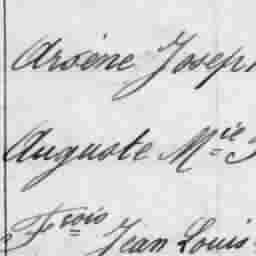 Arsène Joseph
Auguste Mie
Fcois Jean Louis